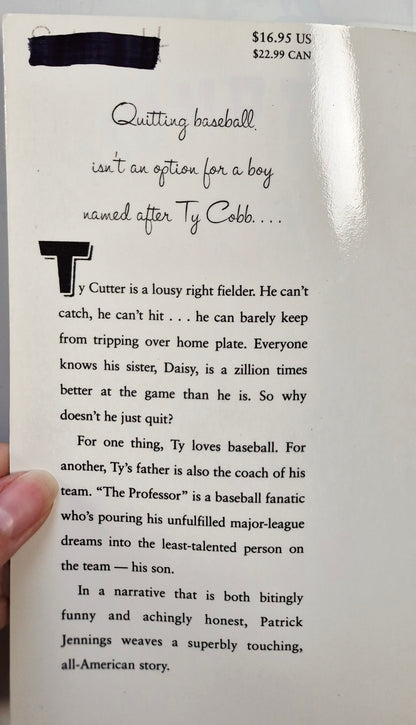 $16.95 US
$22.99 CAN
Quitting baseball
isn't an option for a boy
named after Ty Cobb. . . .
Ty Cutter is a lousy right fielder. He can't
catch, he can't hit . . . he can barely keep
from tripping over home plate. Everyone
knows his sister, Daisy, is a zillion times
better at the game than he is. So why
doesn't he just quit?
For one thing, Ty loves baseball. For
another, Ty's father is also the coach of his
team. “The Professor” is a baseball fanatic
who's pouring his unfulfilled major-league
dreams into the least-talented person on
the team — his son.
In a narrative that is both bitingly
funny and achingly honest, Patrick
Jennings weaves a superbly touching,
all-American story.